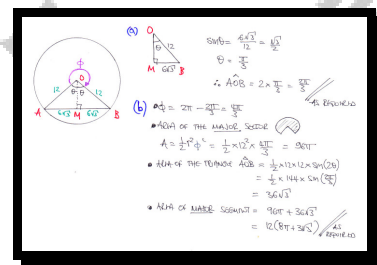 (a)
O
θ
12
M 6√3 B
sinθ = 6√3/12 = √3/2
θ = π/3
∴ AÔB = 2 × π/3 = 2π/3
AS REQUIRED
ϕ
O
12 θ θ 12
A 6√3 M 6√3 B
(b)
• ϕ = 2π - 2π/3 = 4π/3
• AREA OF THE MAJOR SECTOR
A = 1/2 r²ϕ = 1/2 × 12² × 4π/3 = 96π
• AREA OF THE TRIANGLE AÔB = 1/2 × 12 × 12 × sin(2θ)
= 1/2 × 144 × sin(2π/3)
= 36√3
• AREA OF MAJOR SEGMENT = 96π + 36√3
= 12(8π + 3√3)
AS REQUIRED